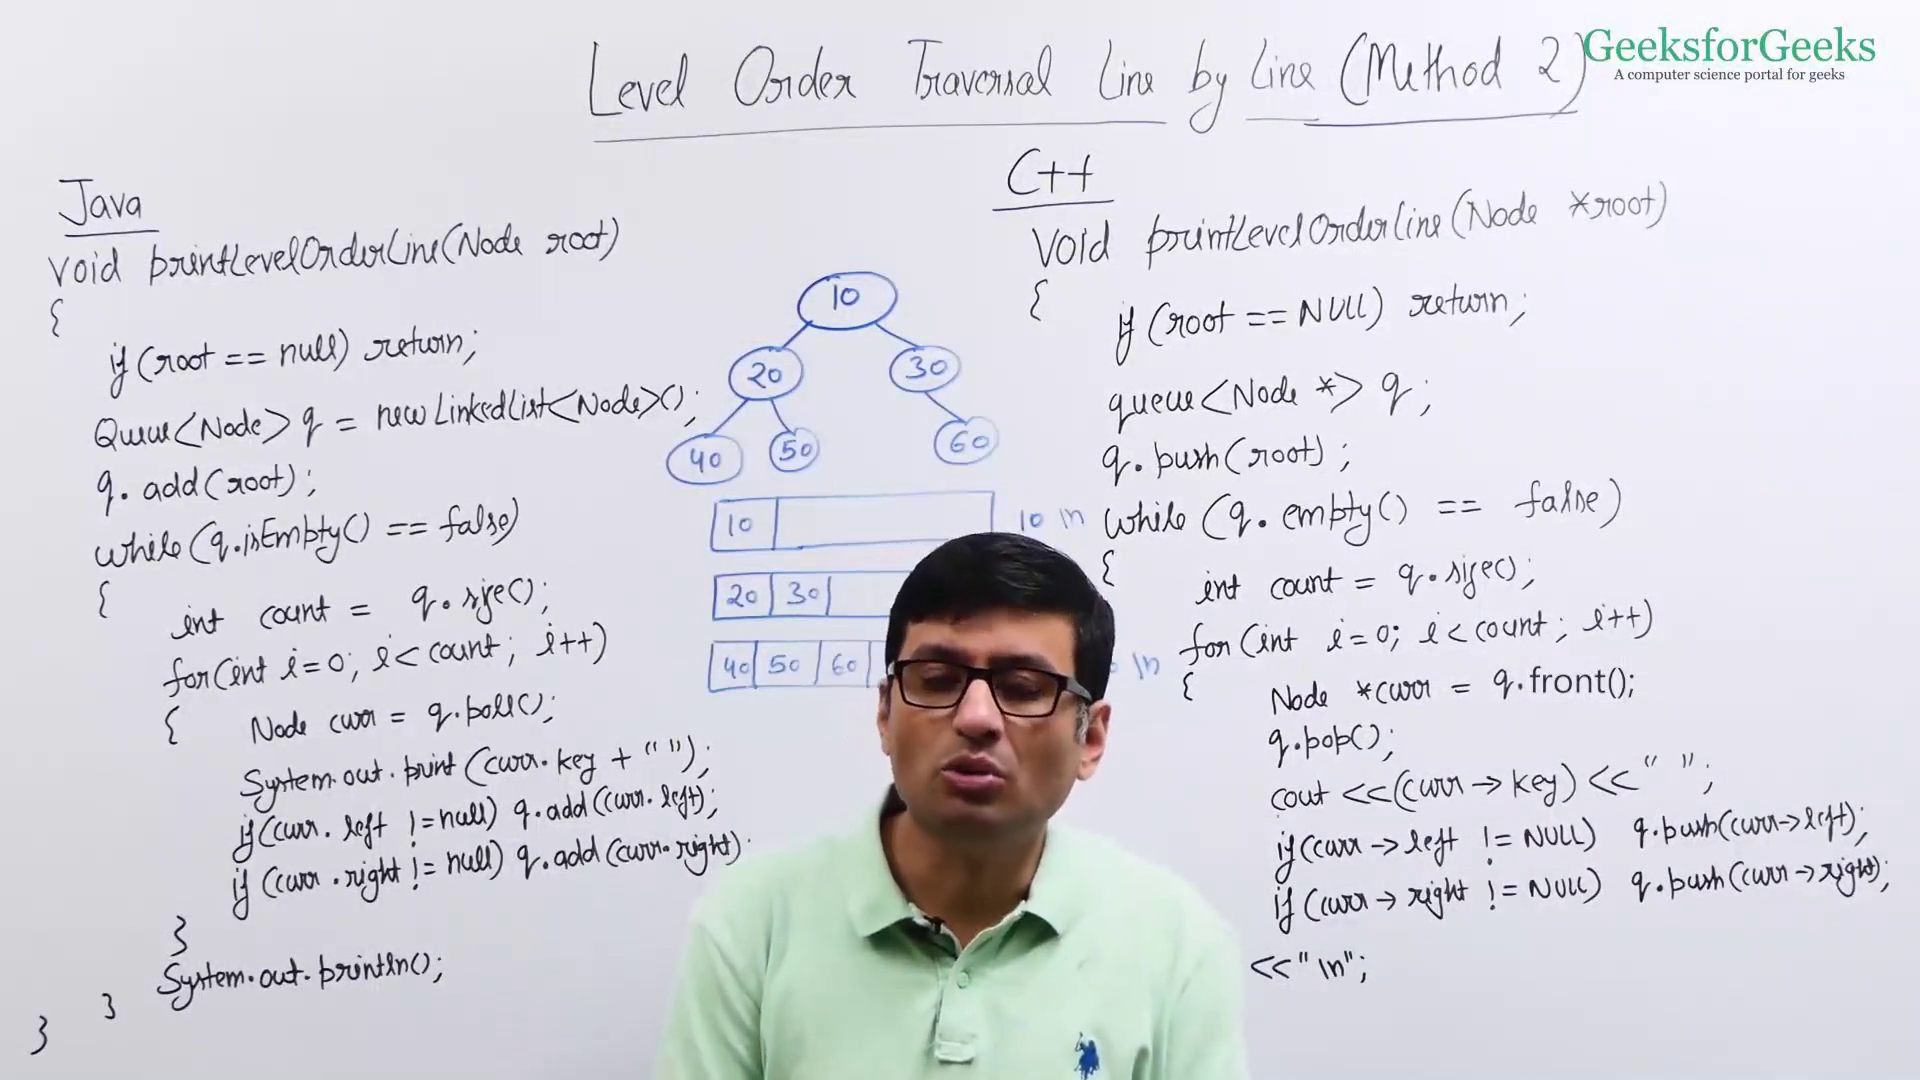 Level Order Traversal Line by Line (Method 2)
GeeksforGeeks
A computer science portal for geeks
Java
void printLevelOrderLine(Node root)
{
if (root == null) return;
Queue<Node> q = new LinkedList<Node>();
q. add(root);
while(q.isEmpty() == false)
{
int count = q.size();
for(int i=0; i<count; i++)
{ Node curr = q.poll();
System.out.print(curr.key + " ");
if(curr.left != null) q.add(curr.left);
if (curr.right != null) q.add(curr.right);
}
System.out.println();
}
}
10
20 30
40 50 60
10
10 \n
20 30
40 50 60
\n
C++
void printLevelOrderLine(Node *root)
{
if (root == NULL) return;
queue<Node *> q;
q.push(root);
while (q.empty() == false)
{
int count = q.size();
for(int i=0; i<count; i++)
{
Node *curr = q.front();
q.pop();
cout <<(curr → key) <<" ";
if(curr → left != NULL) q.push(curr→left);
if(curr → right != NULL) q.push(curr→right);
<<"\n";